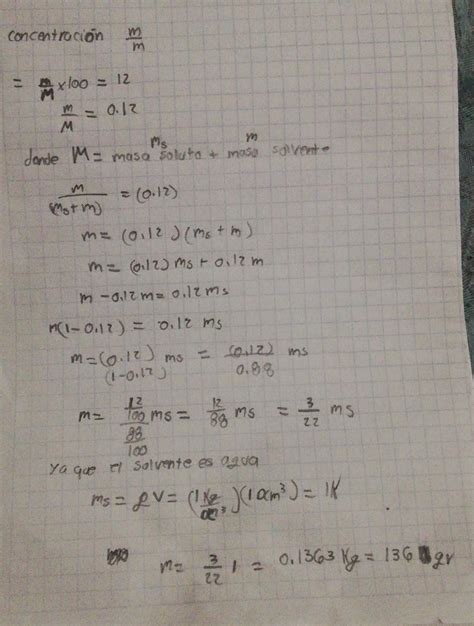 concentración m/m
= m/M x100 = 12
m/M = 0.12
donde M = masa soluto + masa solvente
ms m
m/(ms+m) = (0.12)
m = (0.12)(ms + m)
m = (0.12) ms + 0.12 m
m - 0.12 m = 0.12 ms
m(1-0.12) = 0.12 ms
m = (0.12)/(1-0.12) ms = (0.12)/0.88 ms
m = 12/100/88/100 ms = 12/88 ms = 3/22 ms
ya que el solvente es agua
ms = ρV = (1 Kg/dm³)(1 dm³) = 1K
m = 3/22 1 = 0.1363 Kg = 136 gr